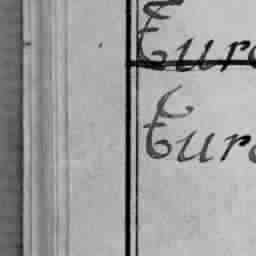 Euro
Euro